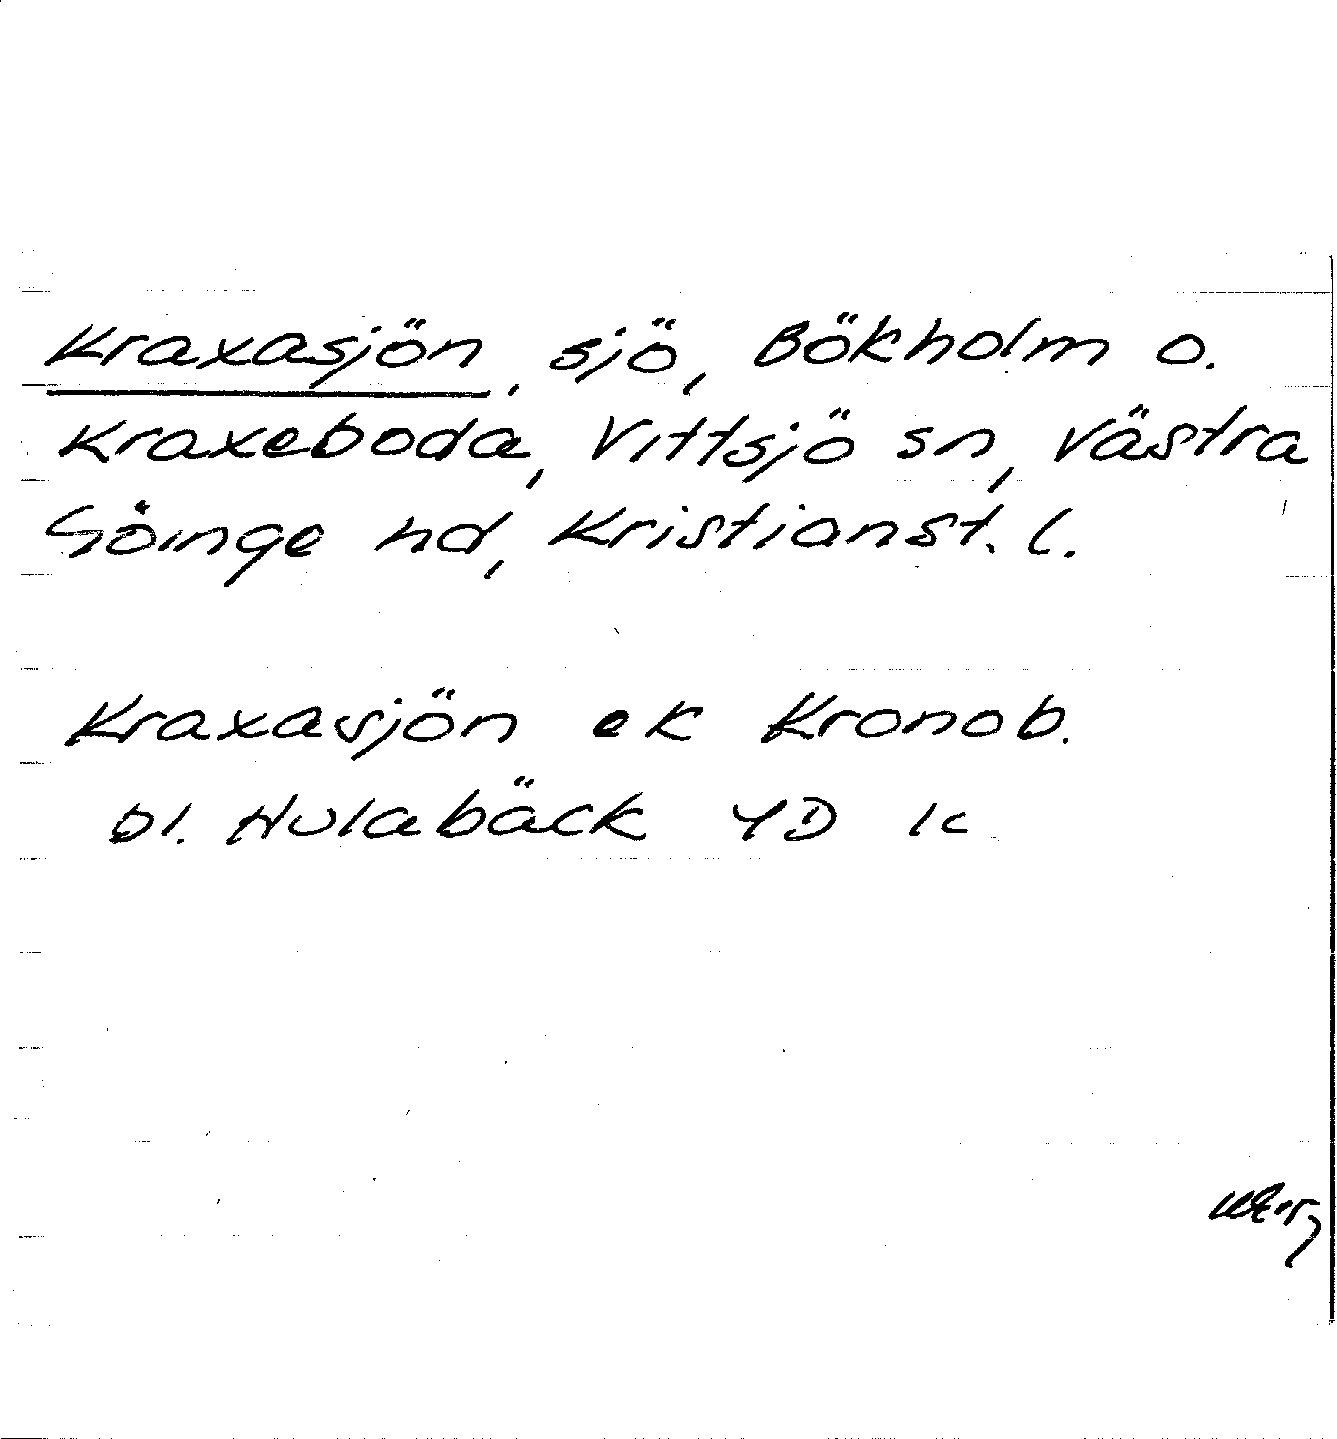 Kraxasjön, sjö, Bökholm o.
Kraxeboda, Vittsjö sn, Västra
Göinge hd, Kristianst. l.
Kraxasjön ek Kronob.
bl. Hulabäck 4D 1c